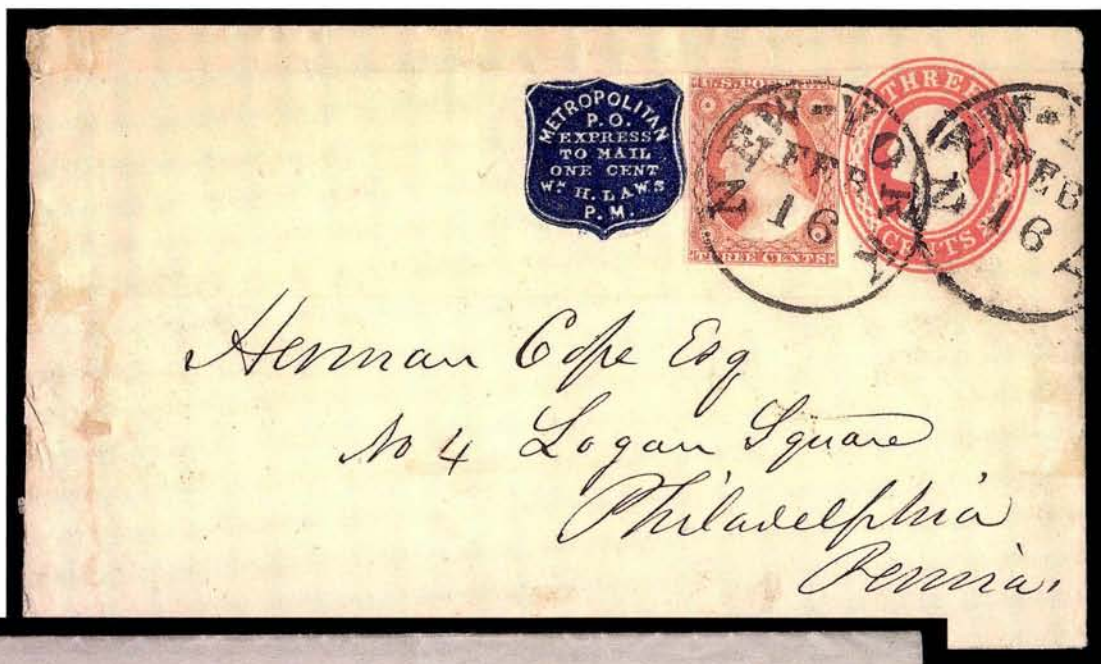 METROPOLITAN
P.O.
EXPRESS
TO MAIL
ONE CENT
Wm H. LAWS
P.M.
U.S. POSTAGE
THREE CENTS
NEW-YORK
FEB
16
THREE
CENTS
NEW-Y
FEB
16
Herman Cope Esq
No 4 Logan Square
Philadelphia
Penna.